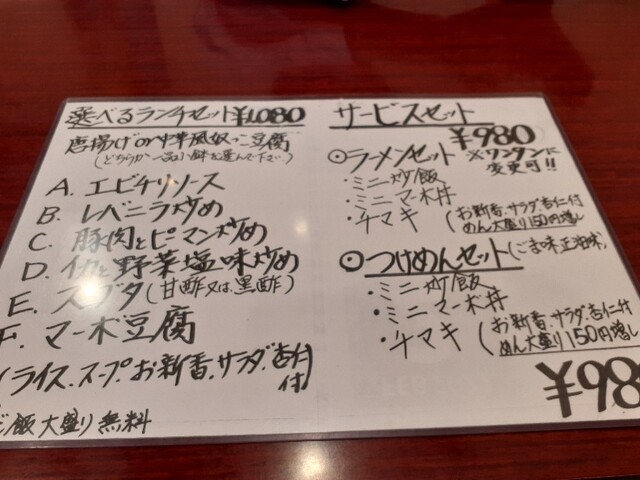 選べるランチセット¥1,080
唐揚げor中華風奴っこ豆腐
(どちらか一品お選んで下さい)
A. エビチリソース
B. レバニラ炒め
C. 豚肉とピーマン炒め
D. イカと野菜塩味炒め
E. スブタ(甘酢又は黒酢)
F. マーボ豆腐
ライス、スープ、お新香、サラダ、杏仁付
付
ご飯大盛り無料
サービスセット
¥980
⊙ラーメンセット ※ワンタンに
変更可!!
・ミニ炒飯
・ミニマーボ丼
・チマキ
(お新香、サラダ杏仁付
めん大盛り150円増し)
⊙つけめんセット(ごま味、正油味)
・ミニ炒飯
・ミニマーボ丼
・チマキ
(お新香、サラダ杏仁付
めん大盛り150円増し
¥98